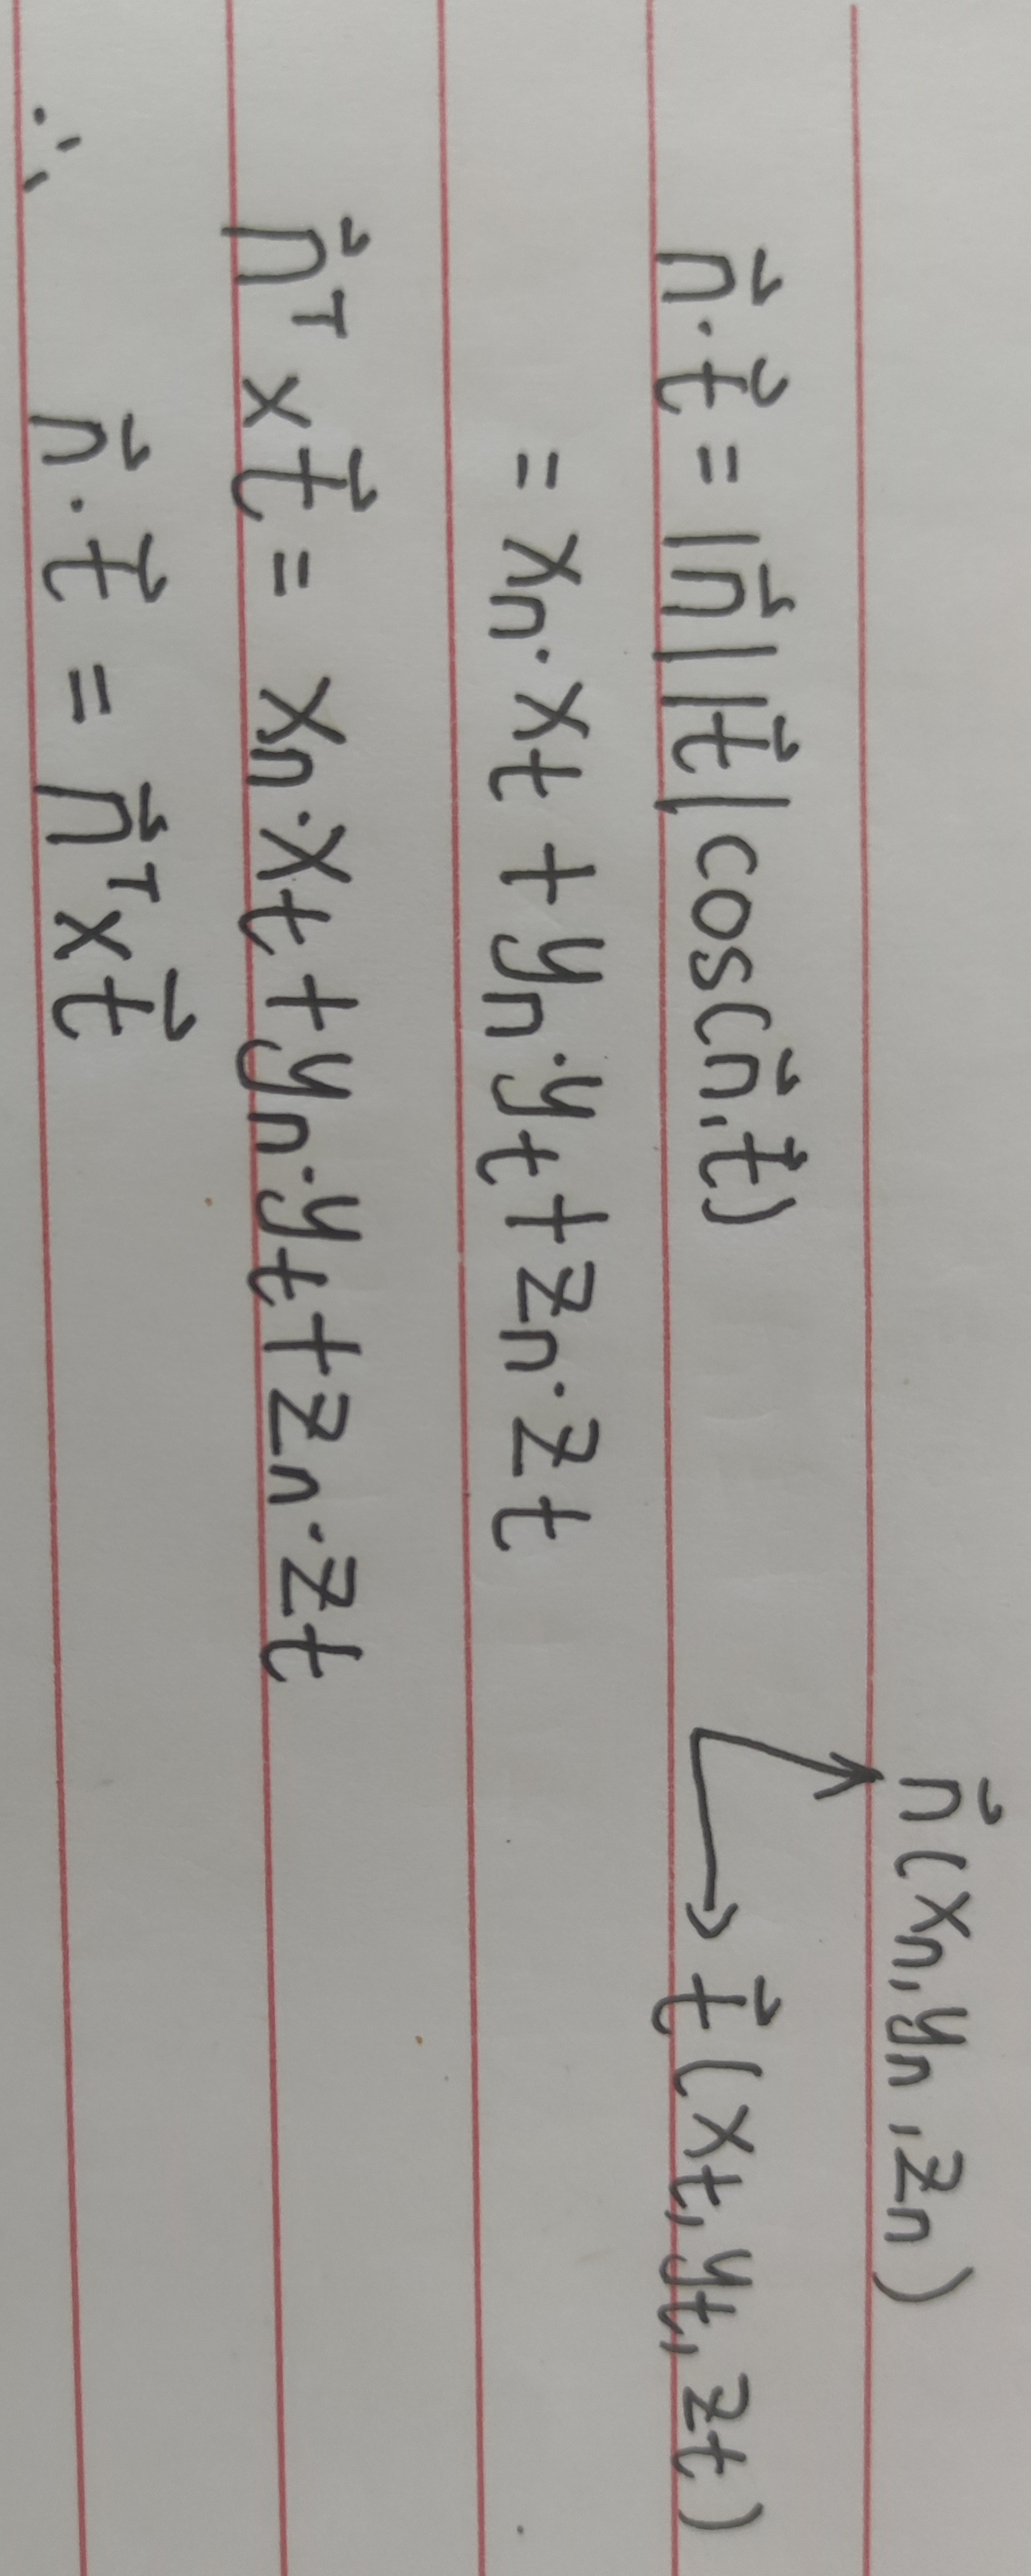 n⃗(xₙ,yₙ,zₙ)
n⃗·t⃗ = |n⃗||t⃗|cos(n⃗,t⃗) t⃗(xₜ,yₜ,zₜ)
= xₙ·xₜ + yₙ·yₜ + zₙ·zₜ
n⃗ᵀ×t⃗ = xₙ·xₜ + yₙ·yₜ + zₙ·zₜ
∴ n⃗·t⃗ = n⃗ᵀ×t⃗